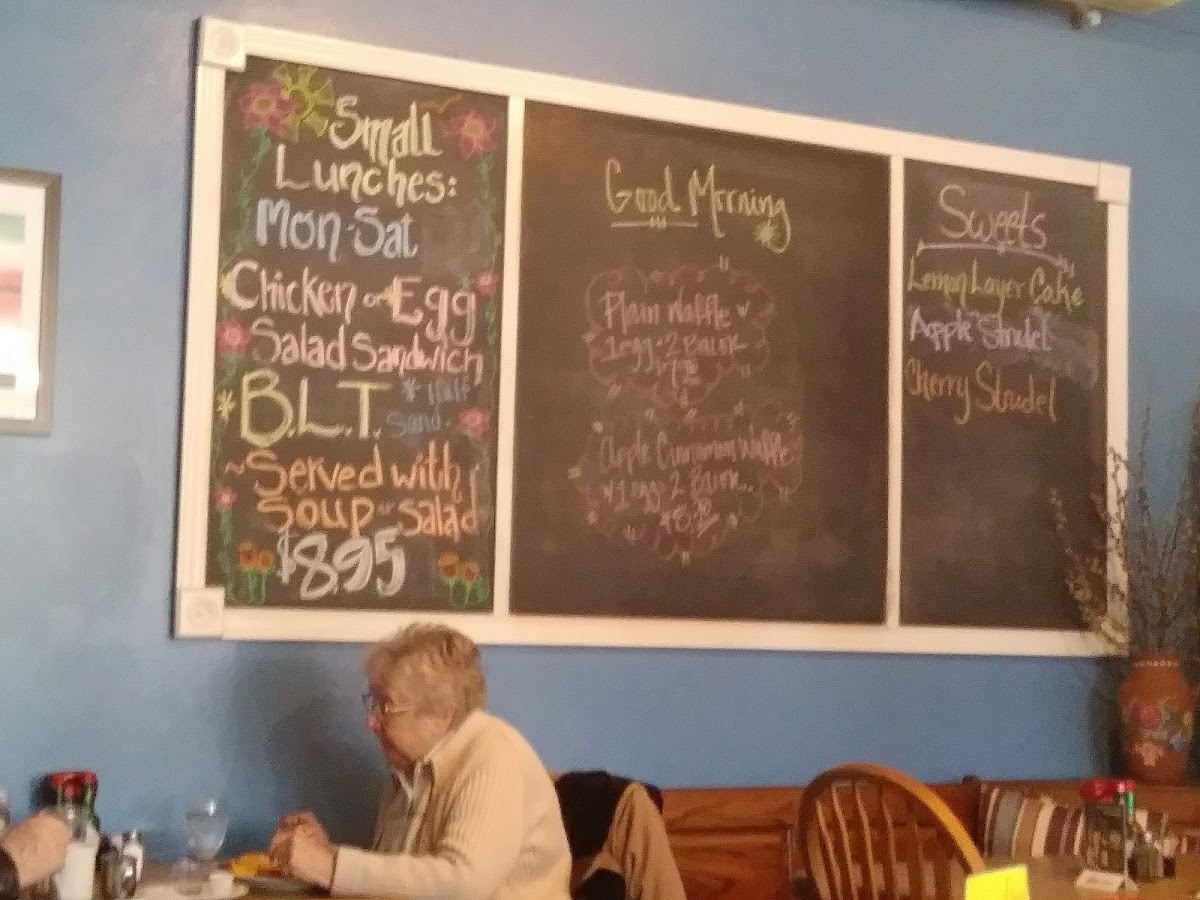 Small
Lunches:
Mon-Sat
Chicken or Egg
Salad Sandwich
B.L.T. * Half
Sand.
~Served with
Soup or Salad
$8.95
Good Morning
Plain Waffle
1 egg 2 Bacon
Apple Cinnamon Waffle
w 1 egg 2 Bacon
Sweets
Lemon Layer Cake
Apple Strudel
Cherry Strudel